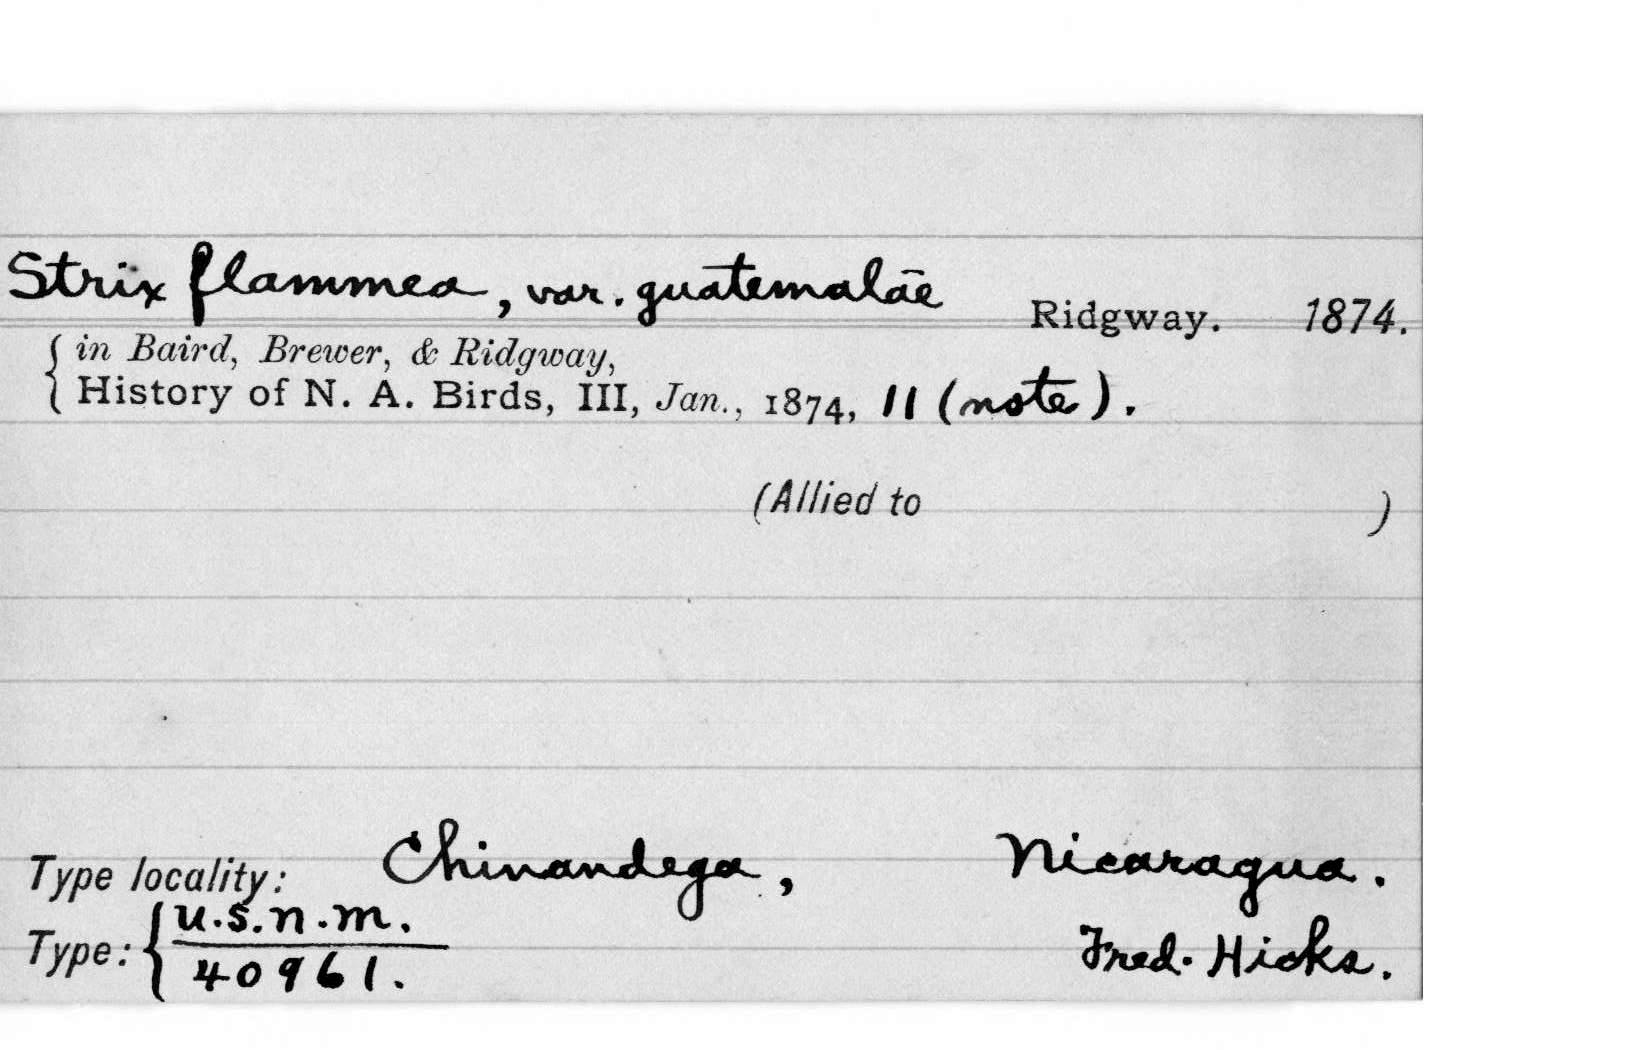 Strix flammea, var. guatemalāe Ridgway. 1874.
{ in Baird, Brewer, & Ridgway,
History of N. A. Birds, III, Jan., 1874, 11 (note).
(Allied to )
Type locality: Chinandega, Nicaragua.
Type: { U.S.N.M.
40961. Fred. Hicks.